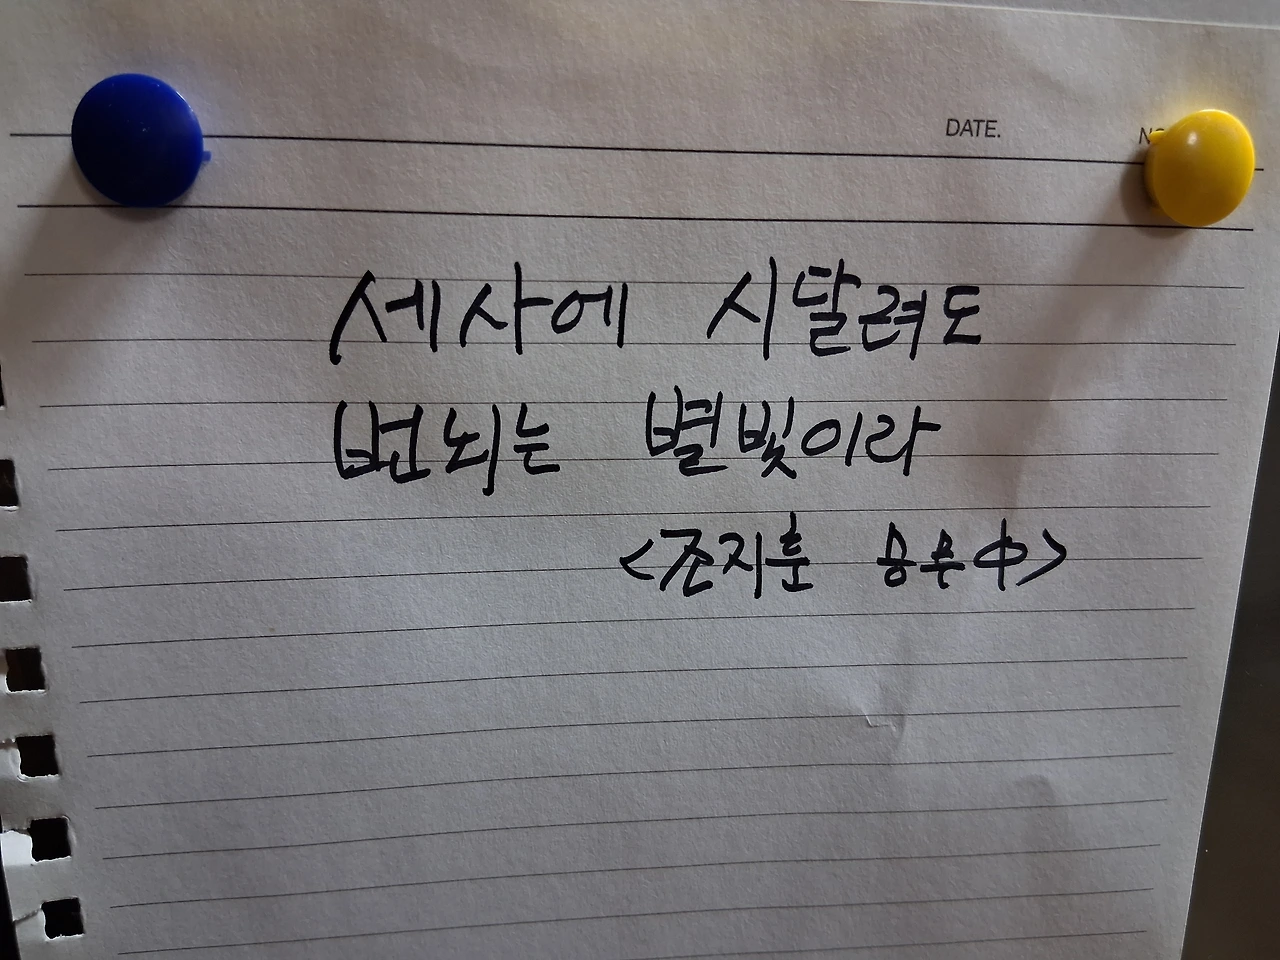 DATE.
세사에 시달려도
번뇌는 별빛이라
<조지훈 승무中>